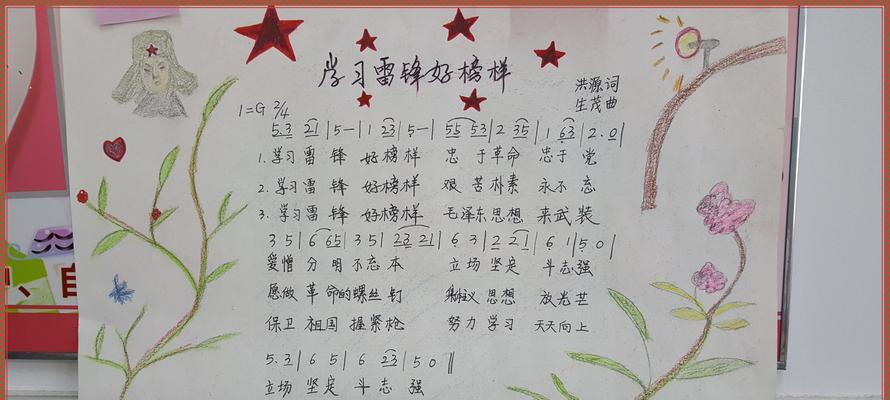 学习雷锋好榜样
洪源词
生茂曲
1=G 2/4
5.3 21|5-|1 23|5-|55 53|2 35|1 63|2.0|
1.学习雷 锋 好榜样 忠 于革命 忠于 党
2.学习雷 锋 好榜样 艰 苦朴素 永不 忘
3.学习雷 锋 好榜样 毛泽东思想 来武装
3 5|6 65|3 5|23 21|6 3|2 21|6 1|5 0|
爱憎 分 明 不忘 本 立场 坚定 斗志 强
愿做 革 命的螺丝 钉 思想 放光芒
保卫 祖国 握紧枪 努力 学习 天天向上
5.3|6 5|6 23|5 0‖
立场 坚定 斗 志 强